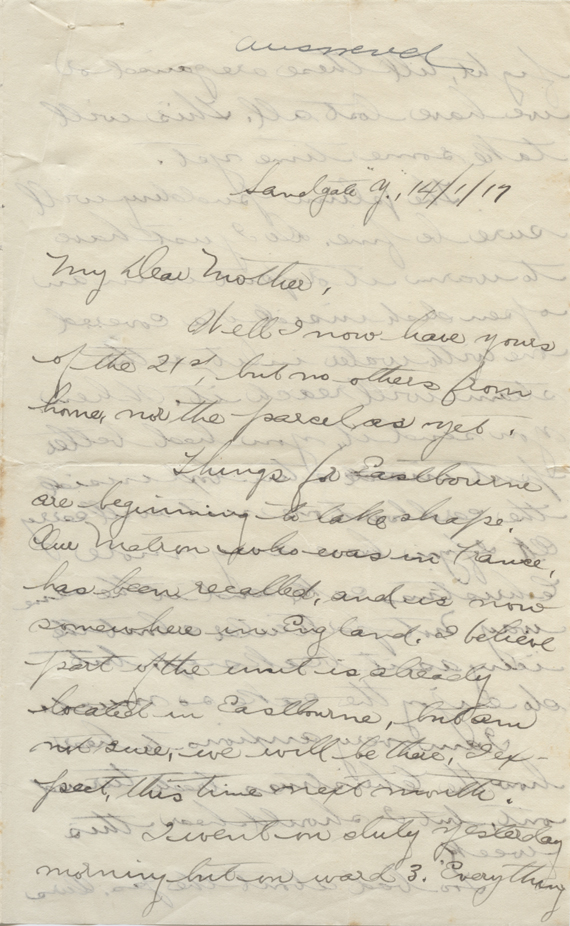 answered
Sandgate "Y", 14/1/17
My Dear Mother,
Well I now have yours
of the 21st, but no others from
home, nor the parcel as yet.
Things for Eastbourne
are beginning to take shape.
Our Matron who was in France,
has been recalled, and is now
somewhere in England. I believe
part of the unit is already
located in Eastbourne, but am
not sure, we will be there, I ex-
pect, this time next month.
I went on duty yesterday
morning but on ward 3. Everything